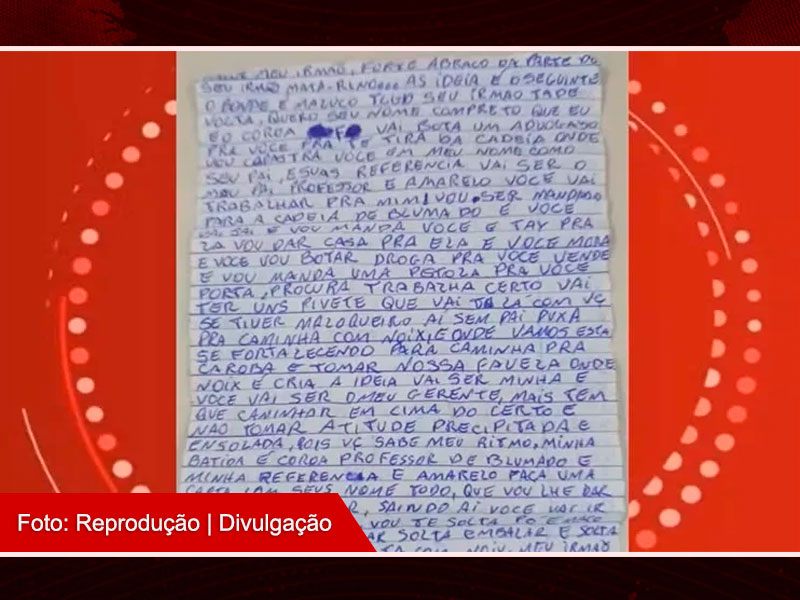 MEU IRMÃO, FORTE ABRAÇO DA PARTE DO
SEU IRMÃO MATA-RINO... AS IDEIA E O SEGUINTE
O BONDE E MALUCO TLUD SEU IRMÃO TADE
VOLTA, QUERO SEU NOME COMPRETO QUE EU
E O COROA VAI BOTA UM ADVOGADO
PRA VOCE PRA TE TIRA DA CADEIA ONDE
VOU CADASTRA VOCE EM MEU NOME COMO
SEU PAI, ESUAS REFERENCIA VAI SER O
MEU PAI PROFESSOR E AMARELO VOCE VAI
TRABALHAR PRA MIM, VOU SER MANDADO
PARA A CADEIA DE BLUMADO E VOCE
VAI SAI E VOU MANDA VOCE E TAY PRA
LA VOU DAR CASA PRA ELA E VOCE MORA
E VOCE VOU BOTAR DROGA PRA VOCE VENDE
E VOU MANDA UMA PETOLA PRA VOCE
PORTA, PROCURA TRABALHA CERTO VAI
TER UNS PIVETE QUE VAI TA LA COM VÇ
SE TIVER MALOQUEIRO AI SEM PAI PUXA
PRA CAMINHA COM NOIX, E ONDE VAMOS ESTA
SE FORTALECENDO PARA CAMINHA PRA
CAROBA E TOMAR NOSSA FAVELA ONDE
NOIX E CRIA A IDEIA VAI SER MINHA E
VOCE VAI SER O MEU GERENTE, MAIS TEM
QUE CAMINHAR EM CIMA DO CERTO E
NÃO TOMAR ATITUDE PRECIPITADA E
ENSOLADA, POIS VÇ SABE MEU RITMO, MINHA
BATIDA E COROA PROFESSOR DE BLUMADO E
MINHA REFERENCIA E AMARELO FAÇA UMA
CARTA COM SEUS NOME TODO, QUE VOU LHE DAR
SAINDO AI VOCE VAI IR
VOU TE SOLTA
SOLTA EMBALAR E SOLTA
COM NOIX, MEU IRMÃO
Foto: Reprodução | Divulgação